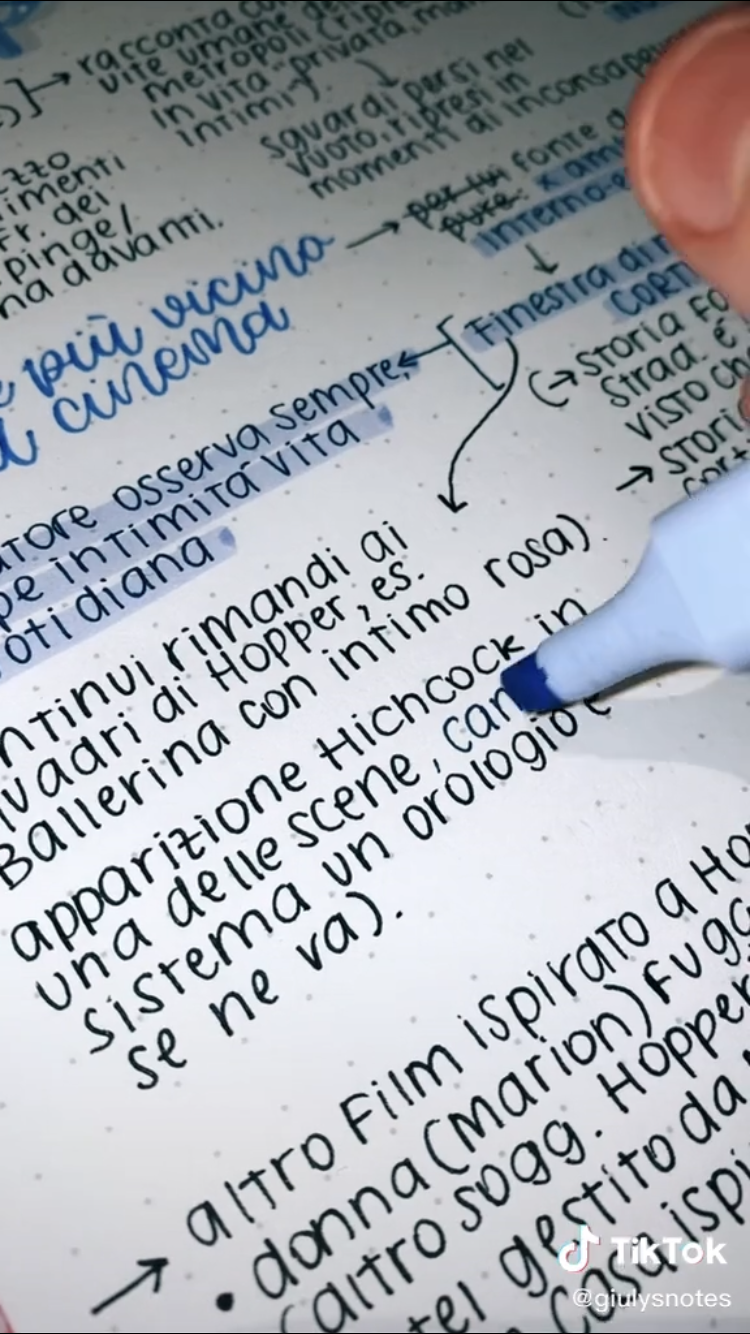 racconta
vite umane
metropoli (ripre
in vita "privata,
intimi").
sguardi persi nel
vuoto, ripresi in
momenti di inconsapev
zzo
imenti
fr. dei
pinge/
na davanti.
per lui fonte d
pure:
interno-e
e più vicino
cinema
Finestra di
CORTI
(→ Storia Fo
Strad. e
visto ch
→ Stori
atore osserva sempre,
pe intimità vita
oti diana
ntinui rimandi ai
uadri di Hopper, es.
Ballerina con intimo rosa).
apparizione Hichcock in
una delle scene, cam
sistema un orologio e
se ne va).
→ altro Film ispirato a Ho
• donna (Marion) Fugg
(altro sogg. Hopper
tel gestito da
casa ispi
TikTok
@giulysnotes